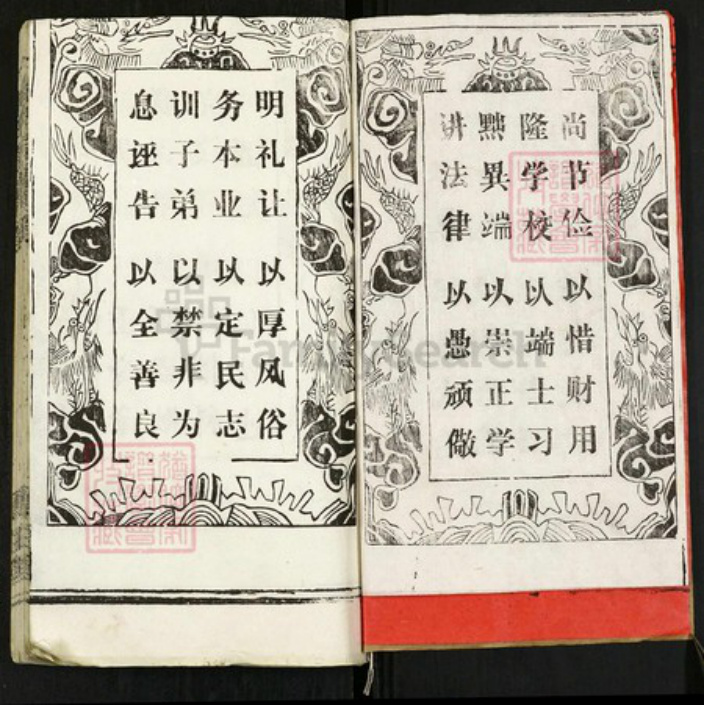 尚节俭以惜财用
隆学校以端士习
黜異端以崇正学
讲法律以愚顽儆
明礼让以厚风俗
务本业以定民志
训子弟以禁非为
息诬告以全善良
FamilySearch